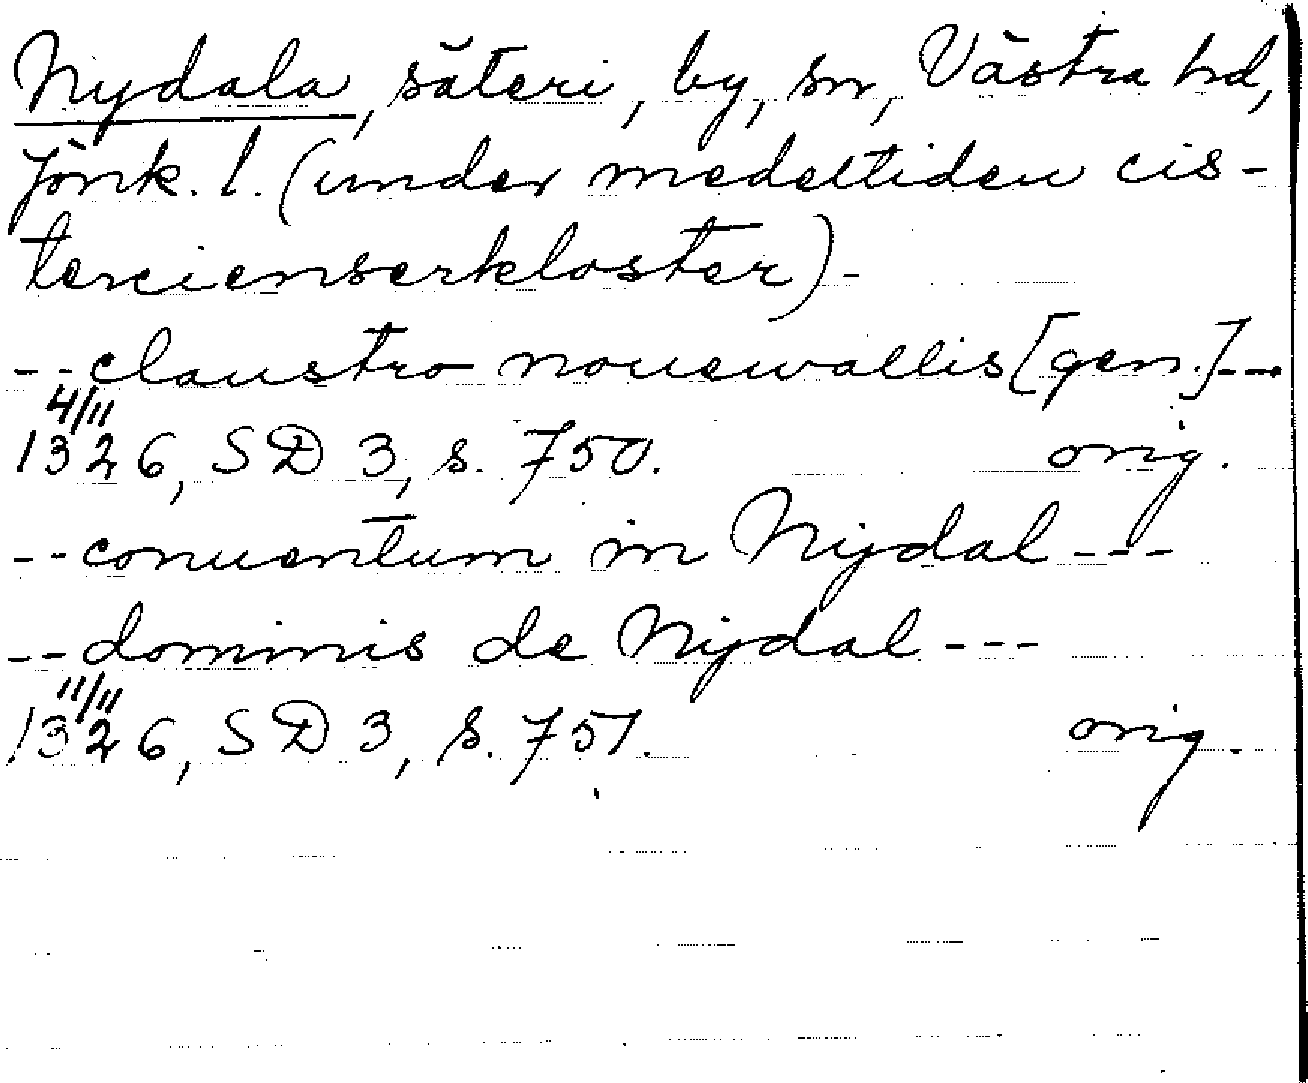 Nydala, säteri, by, sn, Västra hd,
Jönk. l. (under medeltiden cis-
tercienserkloster)-
--claustro nouewallis [gen.]---
4/11
1326, SD 3, s. 750. orig.
--conuentum in Nydal---
--dominis de Nydal---
11/11
1326, SD 3, s. 751. orig.